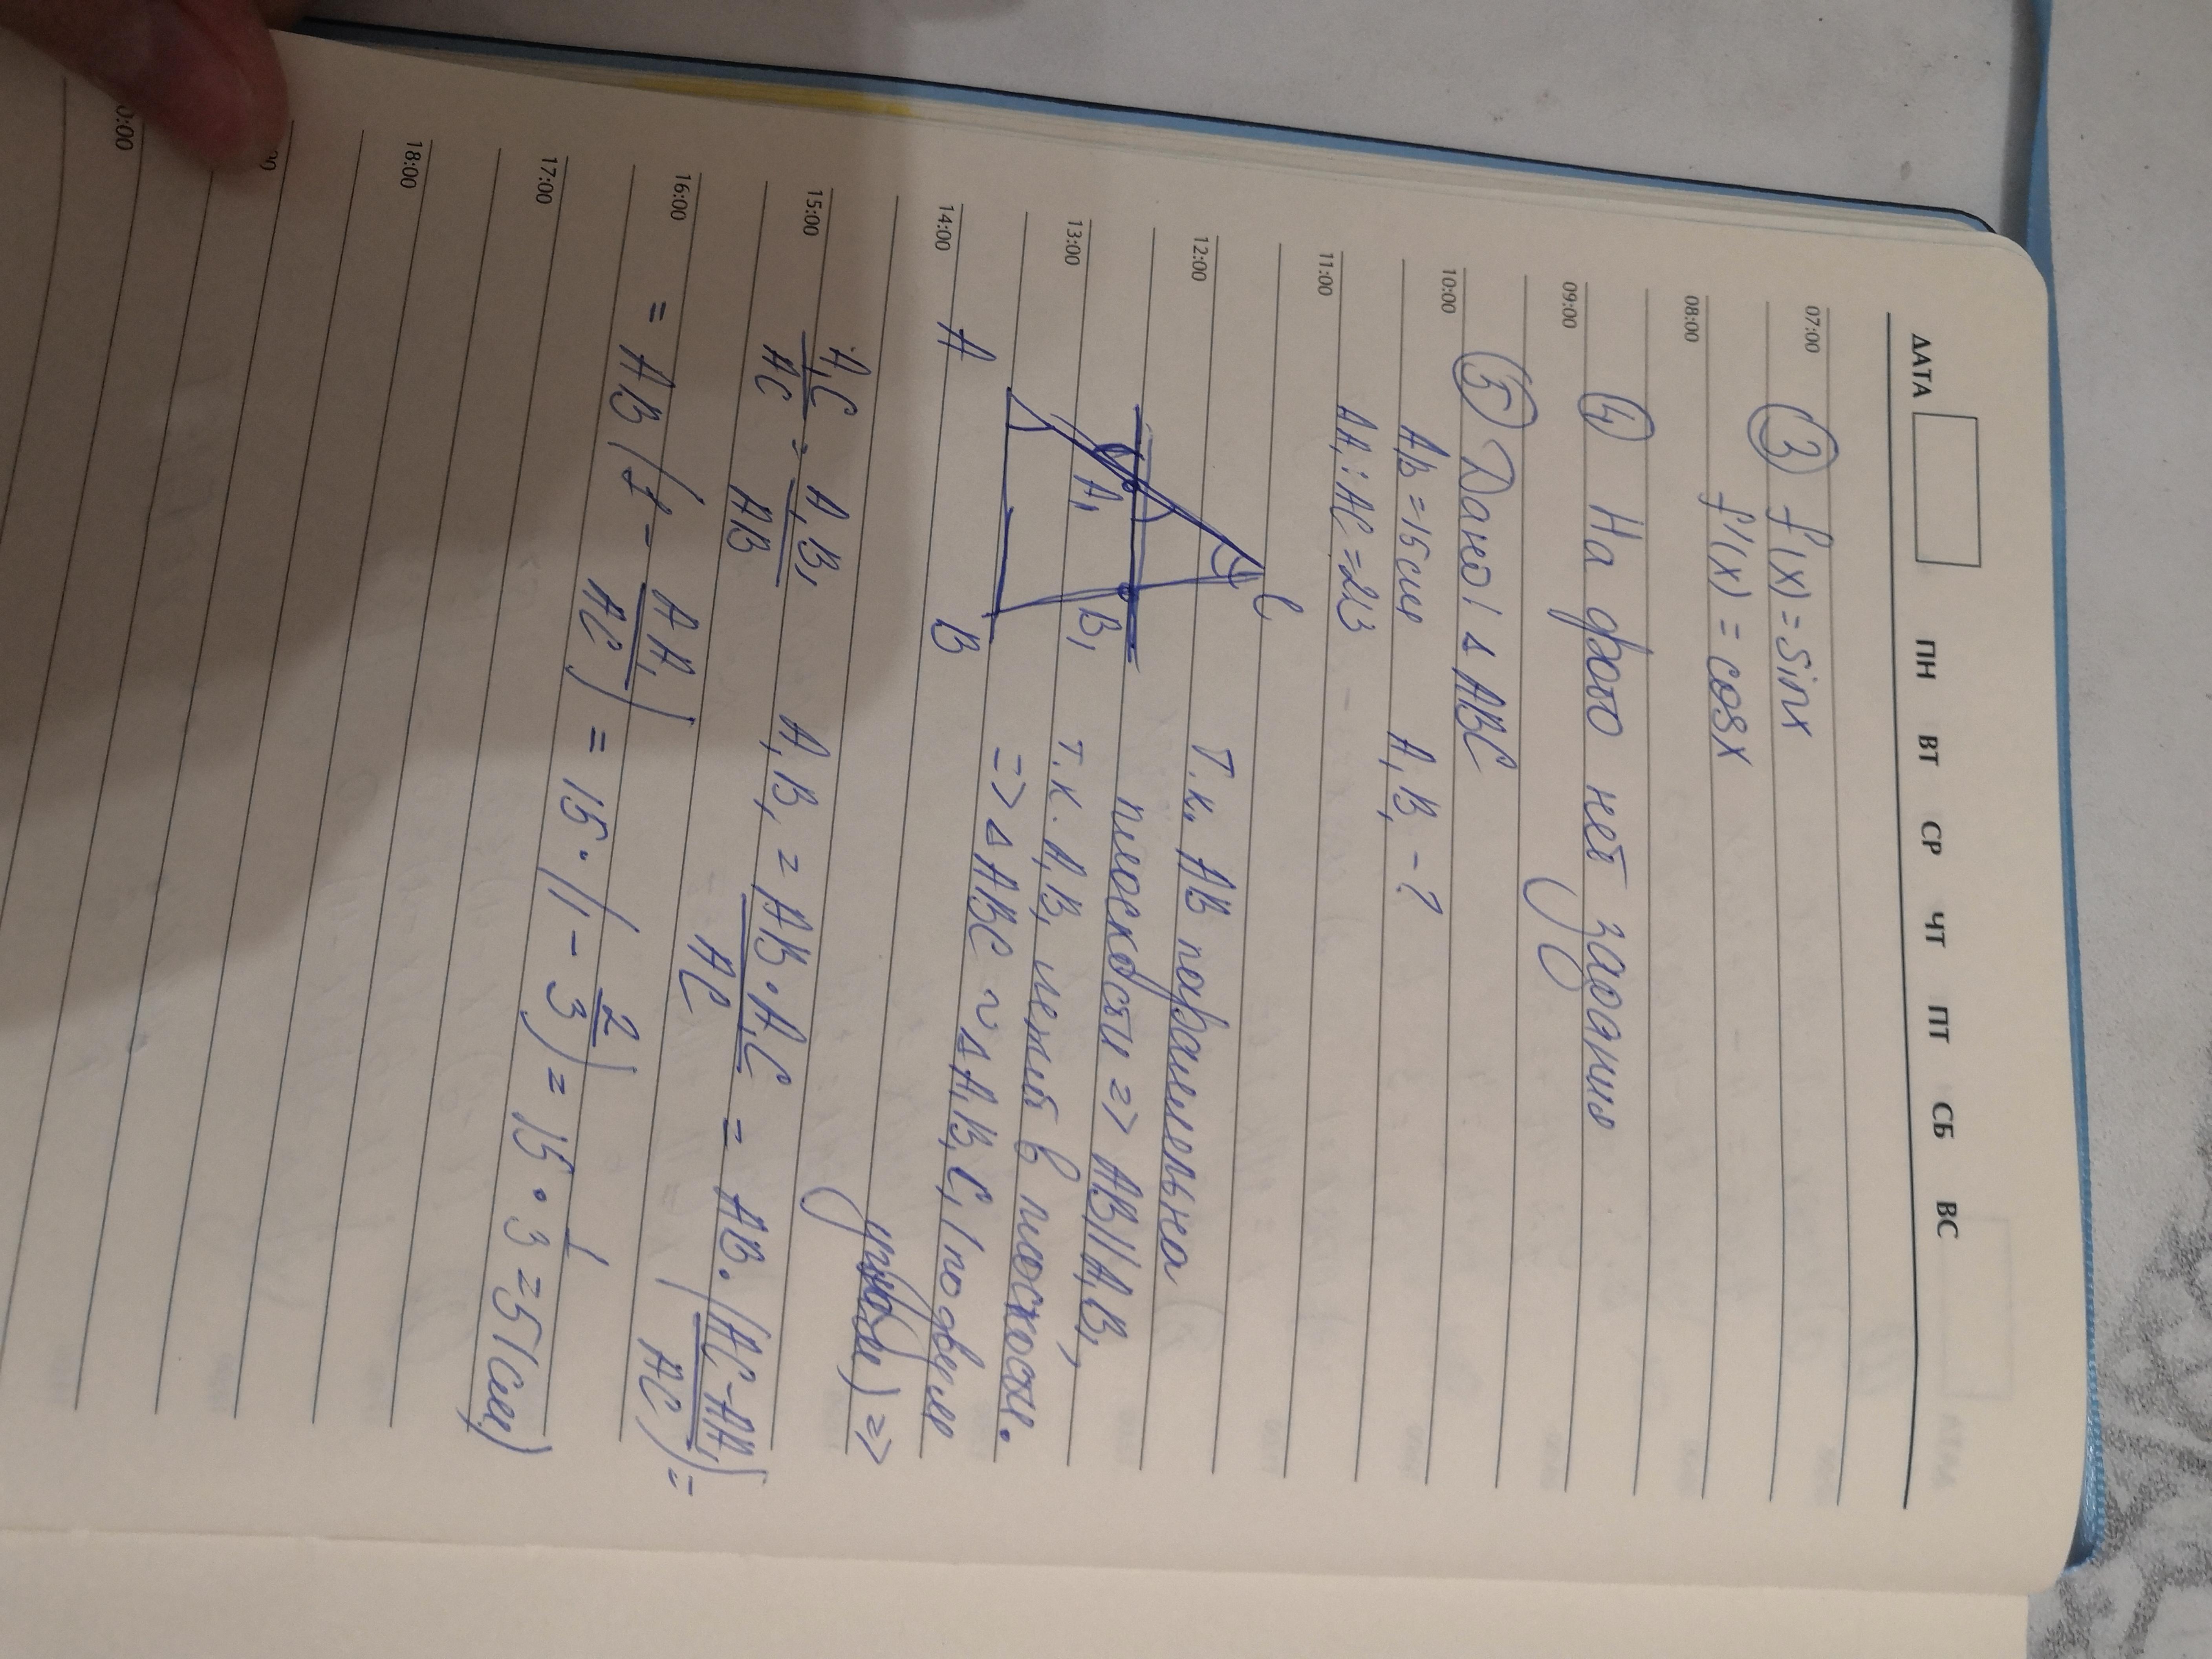 ДАТА ПН ВТ СР ЧТ ПТ СБ ВС
07:00
③ f(x) = sinx
08:00
f'(x) = cosx
09:00
④ На фото нет задания
10:00
⑤ Дано: Δ ABC
AB = 15см A₁B₁ - ?
11:00
AA₁ : AC = 2:3
12:00
C
Т.к. AB параллельна
плоскости => AB || A₁B₁,
13:00
A₁ B₁
т.к. A₁B₁ лежит в плоскости.
=> Δ ABC ~ Δ A₁B₁C, (по двум
14:00
A B
углам) =>
15:00
A₁C / AC = A₁B₁ / AB A₁B₁ = AB · A₁C / AC = AB · (AC - AA₁ / AC) =
16:00
= AB (1 - AA₁ / AC) = 15 · (1 - 2/3) = 15 · 1/3 = 5 (см)
17:00
18:00